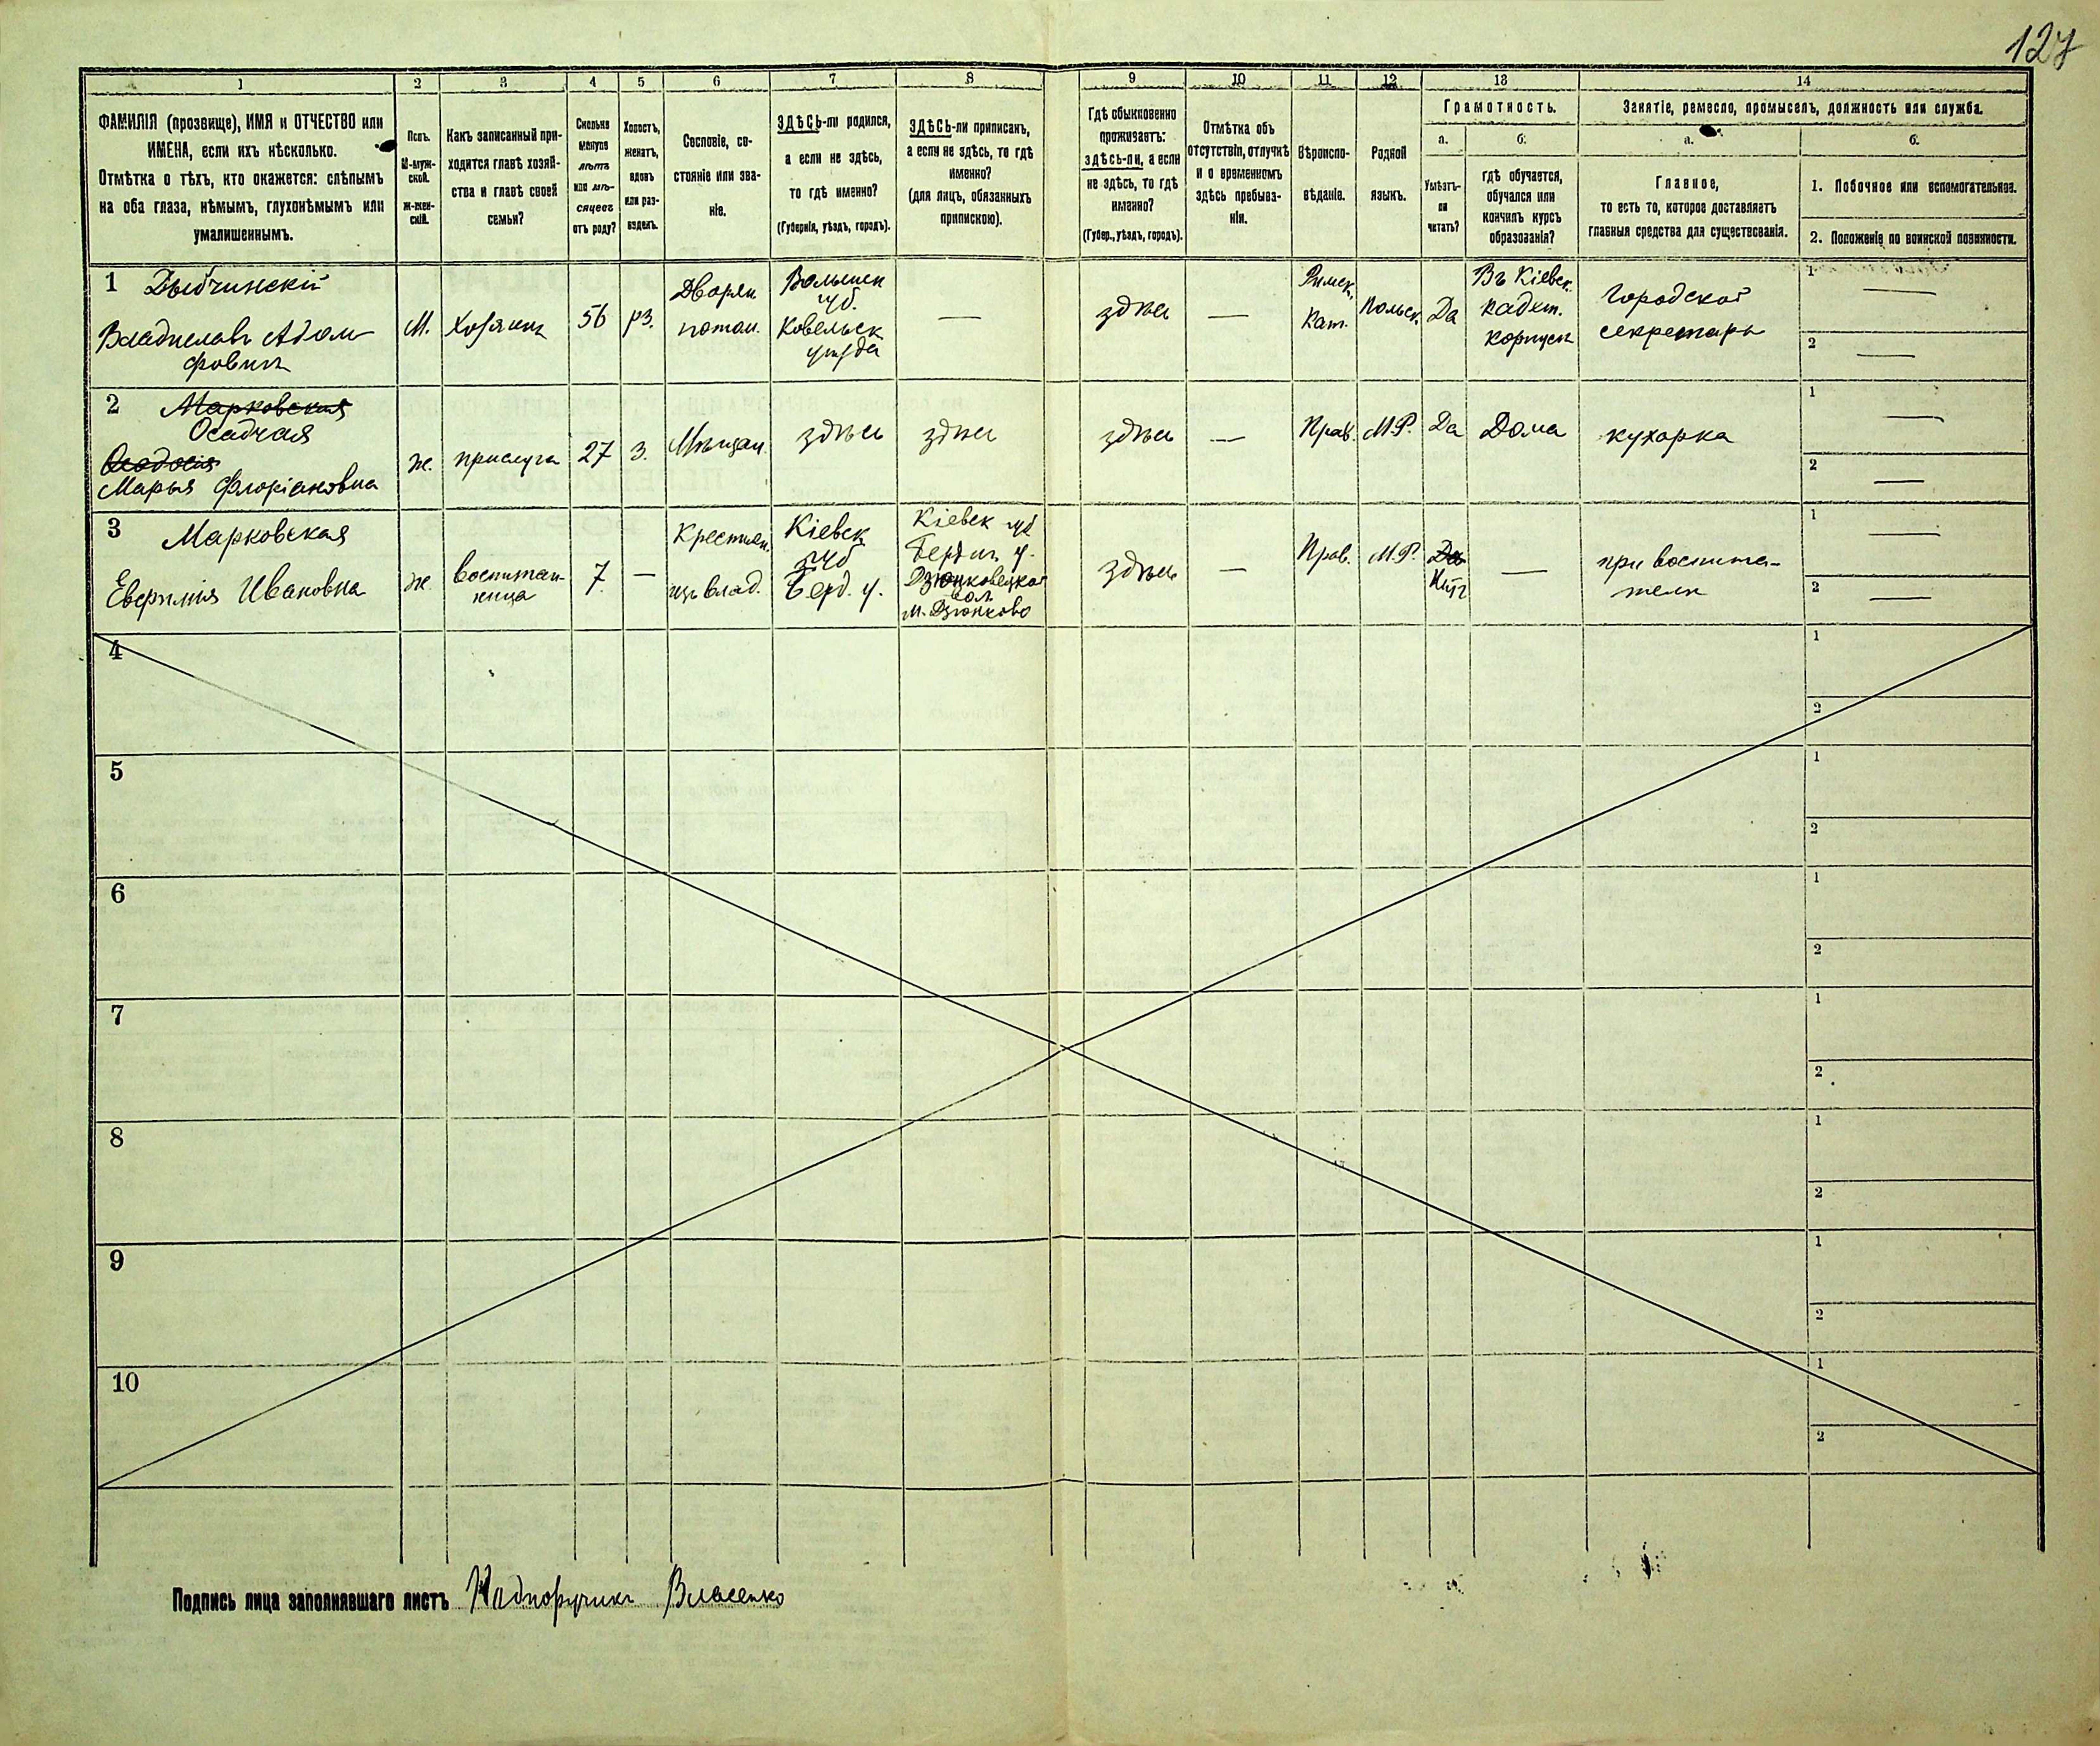 127
1 2 3 4 5 6 7 8 9 10 11 12 13 14
ФАМИЛІЯ (прозвище), ИМЯ и ОТЧЕСТВО или
ИМЕНА, если ихъ нѣсколько.
Отмѣтка о тѣхъ, кто окажется: слѣпымъ
на оба глаза, нѣмымъ, глухонѣмымъ или
умалишеннымъ.
Полъ.
М-муж-
ской.
Ж-жен-
скій.
Какъ записанный при-
ходится главѣ хозяй-
ства и главѣ своей
семьи?
Сколько
минуло
лѣтъ
или мѣ-
сяцевъ
отъ роду?
Холостъ,
женатъ,
вдовъ
или раз-
веденъ.
Сословіе, со-
стояніе или зва-
ніе.
ЗДѢСЬ-ли родился,
а если не здѣсь,
то гдѣ именно?
(Губернія, уѣздъ, городъ).
ЗДѢСЬ-ли приписанъ,
а если не здѣсь, то гдѣ
именно?
(для лицъ, обязанныхъ
припискою).
Гдѣ обыкновенно
проживаетъ:
здѣсь-ли, а если
не здѣсь, то гдѣ
именно?
(Губер., уѣздъ, городъ).
Отмѣтка объ
отсутствіи, отлучкѣ
и о временномъ
здѣсь пребыва-
ніи.
Вѣроиспо-
вѣданіе.
Родной
языкъ.
Грамотность.
а.
Умѣетъ-
ли
читать?
б.
гдѣ обучается,
обучался или
кончилъ курсъ
образованія?
Занятіе, ремесло, промыселъ, должность или служба.
а.
Главное,
то есть то, которое доставляетъ
главныя средства для существованія.
б.
1. Побочное или вспомогательное.
2. Положеніе по воинской повинности.
1 Дыбчинскій
Владиславъ Адоль
фовичъ
М.
Хозяинъ
56
рз.
Дворян
потом.
Волынск
губ.
Ковельск
уѣзда
—
здѣсь
—
Римск.
Кат.
Польск.
Да
Въ Кіевск.
кадет.
корпусѣ
Городской
секретарь
1 —
2 —
2 Марковская
Осадчая
Ѳеодосія
Марья Флоріановна
ж.
прислуга
27
з.
Мѣщан.
здѣсь
здѣсь
здѣсь
—
Прав.
М.Р.
Да
Дома
кухарка
1 —
2 —
3 Марковская
Евфимія Ивановна
ж
воспитан-
ница
7
—
Крестьян.
изъ влад.
Кіевск
губ
Берд. у.
Кіевск губ
Бердич. у.
Дзюнковецкой
вол.
м. Дзюнково
здѣсь
—
Прав.
М.Р.
Да
Нѣт
—
при воспита-
телѣ
1 —
2 —
4 1
2
5 1
2
6 1
2
7 1
2
8 1
2
9 1
2
10 1
2
Подпись лица заполнявшаго листъ Подпоручикъ Власенко